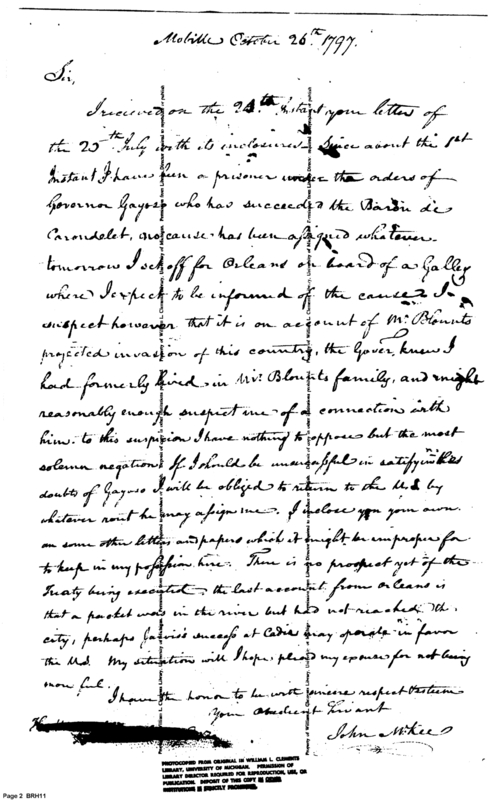 Mobille October 26th. 1797.
Sir,
I recieved on the 24th Instant your letter of
the 25th July with its inclosures. Since about the 1st
Instant I have been a prisoner under the orders of
Governor Gayoso who has succeeded the Baron de
Carondelet, no cause has been assigned whatever.
tomorrow I set off for Orleans on board of a Galley
where I expect to be informed of the cause, I
suspect however that it is on account of Mr. Blounts
projected invasion of this country, the Goverr. knew I
had formerly lived in Mr. Blounts family, and might
reasonably enough suspect me of a connection with
him. to this suspicion I have nothing to oppose but the most
solemn negation. If I should be unsuccessful in satisfying the
doubts of Gayoso I will be obliged to return to the U.S by
whatever rout he may assign me. I inclose you your own
an some other letters and papers which it might be improper for
to keep in my possession here. There is no prospect yet of the
Treaty being executed, the last account from Orleans is
that a packet was in the river but had not reached the
city, perhaps success at Cadiz may operate in favor
the U.S. My situation will I hope, plead my excuse for not being
more ful.
I have the honor to be with sincere respect & esteem
Your Obedient Servant
John McKee
PHOTOCOPIED FROM ORIGINAL IN WILLIAM L. CLEMENTS
LIBRARY, UNIVERSITY OF MICHIGAN. PERMISSION OF
LIBRARY DIRECTOR REQUIRED FOR REPRODUCTION, USE, OR
PUBLICATION. DEPOSIT OF THIS COPY IN OTHER
INSTITUTIONS IS STRICTLY PROHIBITED.
Page 2 BRH11